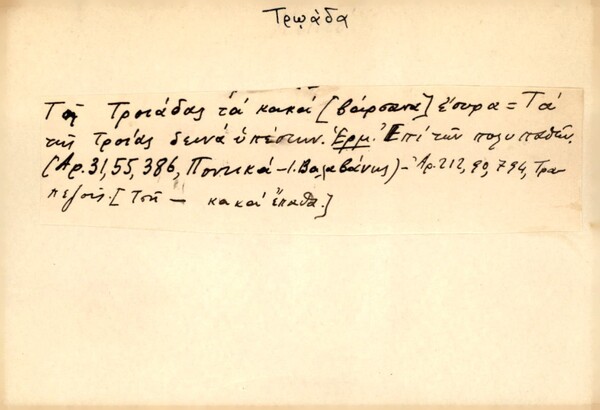 Τρῳάδα
Τη̑ Τρωάδας τά κακά [βάρσανα] έσυρα = Τά
της Τροίας δεινά υπέστην. Ερμ. Επί των πολυπαθών.
(Αρ. 31, 55, 386, Ποντικά – Ι. Βαλαβάνης) – Αρ. 212, 90, 794, Τρα-
πεζούς. [Τση — κακά έπαθα.]